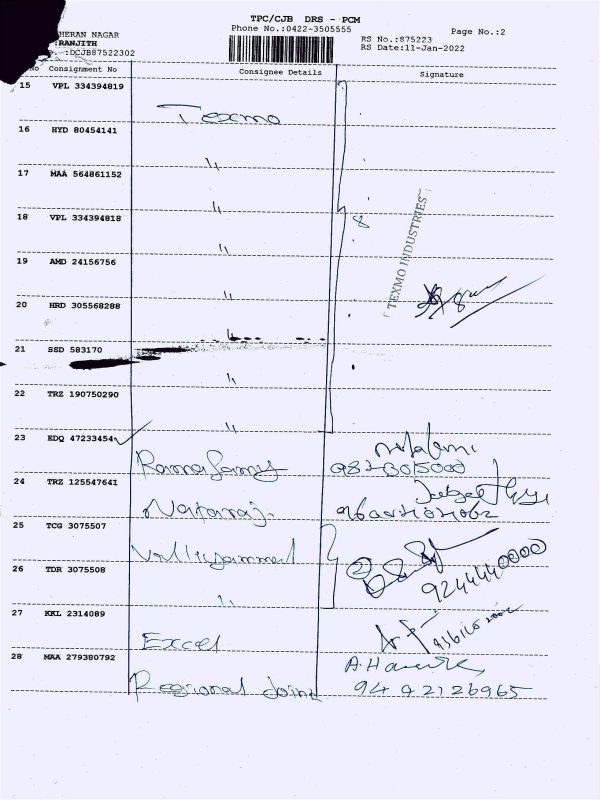 TPC/CJB DRS - PCM
Phone No.:0422-3505555
Page No.:2
HERAN NAGAR
:RANJITH
:DCJB87522302
RS No.:875223
RS Date:11-Jan-2022
No Consignment No Consignee Details Signature
15 VPL 334394819
Texmo
16 HYD 80454141
〃
17 MAA 564861152
〃
18 VPL 334394818 8
〃
19 AMD 24156756
〃
TEXMO INDUSTRIES
20 HRD 305568288
〃
21 SSD 583170
〃
22 TRZ 190750290
〃
23 EDQ 47233454
Ramasamy
24 TRZ 125547641
Nataraj.
25 TCG 3075507
Valliyammal
26 TDR 3075508 2
9244440000
〃
27 KKL 2314089
Excel
28 MAA 279380792
Regional Joint 9492126965